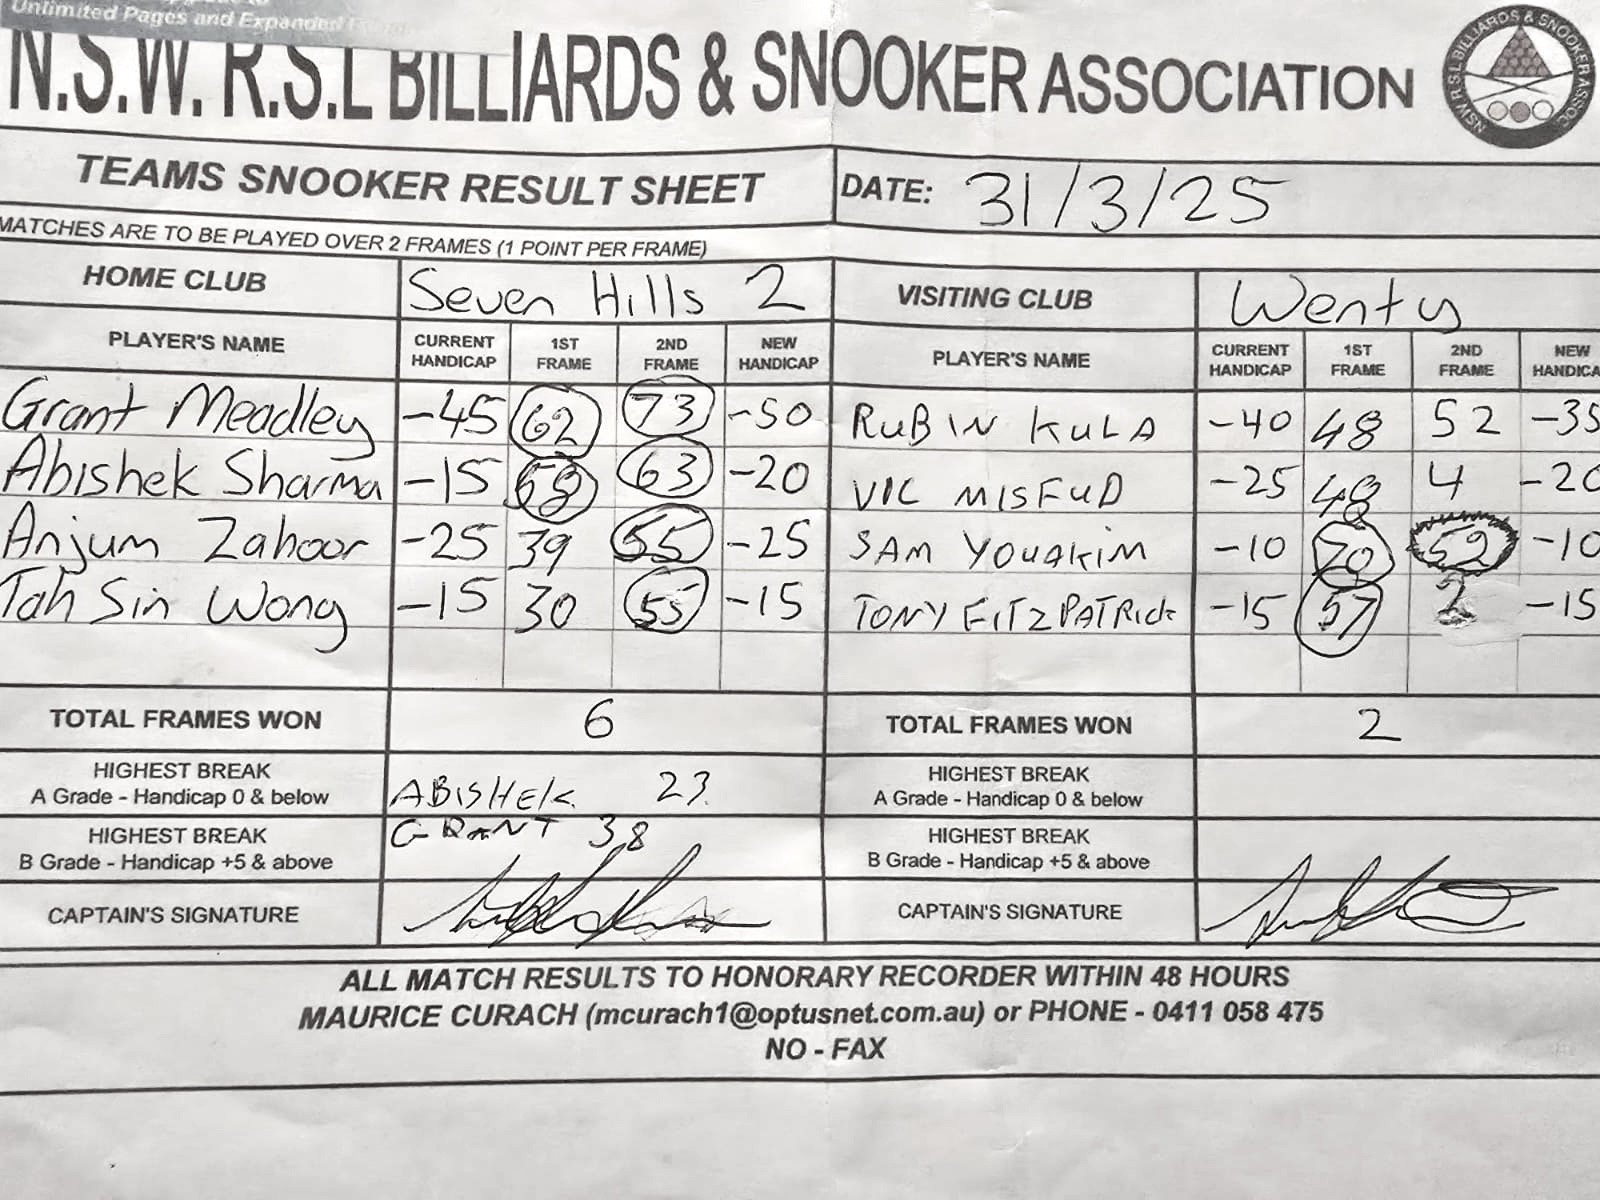 Unlimited Pages and Expanded
N.S.W. R.S.L BILLIARDS & SNOOKER ASSOCIATION
NSW R.S.L BILLIARDS & SNOOKER ASSOC.
TEAMS SNOOKER RESULT SHEET DATE: 31/3/25
MATCHES ARE TO BE PLAYED OVER 2 FRAMES (1 POINT PER FRAME)
HOME CLUB Seven Hills 2 VISITING CLUB Wenty
PLAYER'S NAME CURRENT HANDICAP 1ST FRAME 2ND FRAME NEW HANDICAP PLAYER'S NAME CURRENT HANDICAP 1ST FRAME 2ND FRAME NEW HANDICA
Grant Meadley -45 62 73 -50 RUBIN KULA -40 48 52 -35
Abishek Sharma -15 58 63 -20 VIC MISFUD -25 48 4 -20
Anjum Zahoor -25 39 55 -25 SAM YOUAKIM -10 70 52 -10
Tah Sin Wong -15 30 55 -15 TONY FITZPATRICK -15 57 2 -15
TOTAL FRAMES WON 6 TOTAL FRAMES WON 2
HIGHEST BREAK A Grade - Handicap 0 & below ABISHEK 23. HIGHEST BREAK A Grade - Handicap 0 & below
HIGHEST BREAK B Grade - Handicap +5 & above GRANT 38 HIGHEST BREAK B Grade - Handicap +5 & above
CAPTAIN'S SIGNATURE CAPTAIN'S SIGNATURE
ALL MATCH RESULTS TO HONORARY RECORDER WITHIN 48 HOURS
MAURICE CURACH (mcurach1@optusnet.com.au) or PHONE - 0411 058 475
NO - FAX